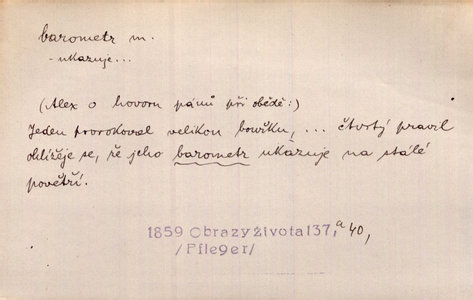 barometr m.
- ukazuje...
(Alex o hovoru pánů při obědě:)
Jeden prorokoval velikou bouřku, ... čtvrtý pravil
ohlížeje se, že jeho barometr ukazuje na stálé
povětří.
1859 Obrazy života 137, a 40,
/Pfleger/